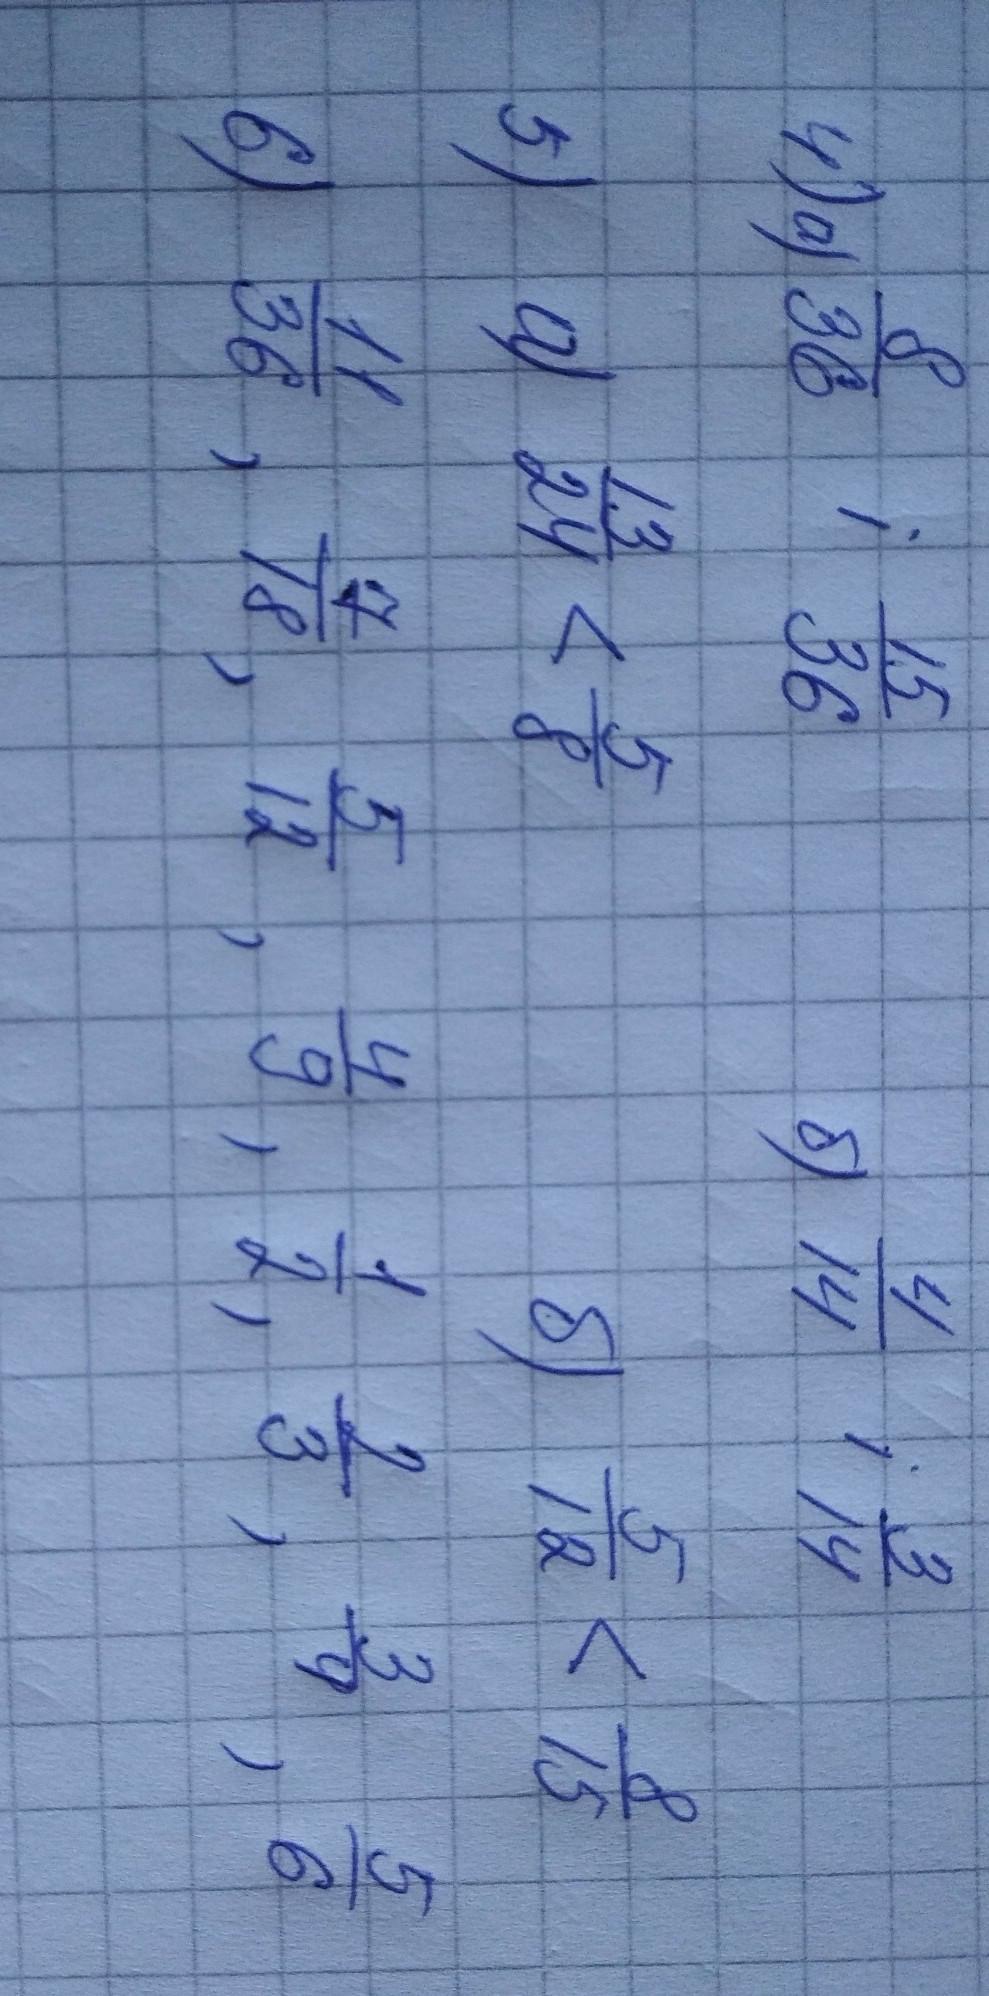 4) а) 8/36 і 15/36 б) 4/14 і 3/14
5) а) 13/24 < 5/8 б) 5/12 < 8/15
6) 11/36, 7/18, 5/12, 4/9, 1/2, 2/3, 3/4, 5/6